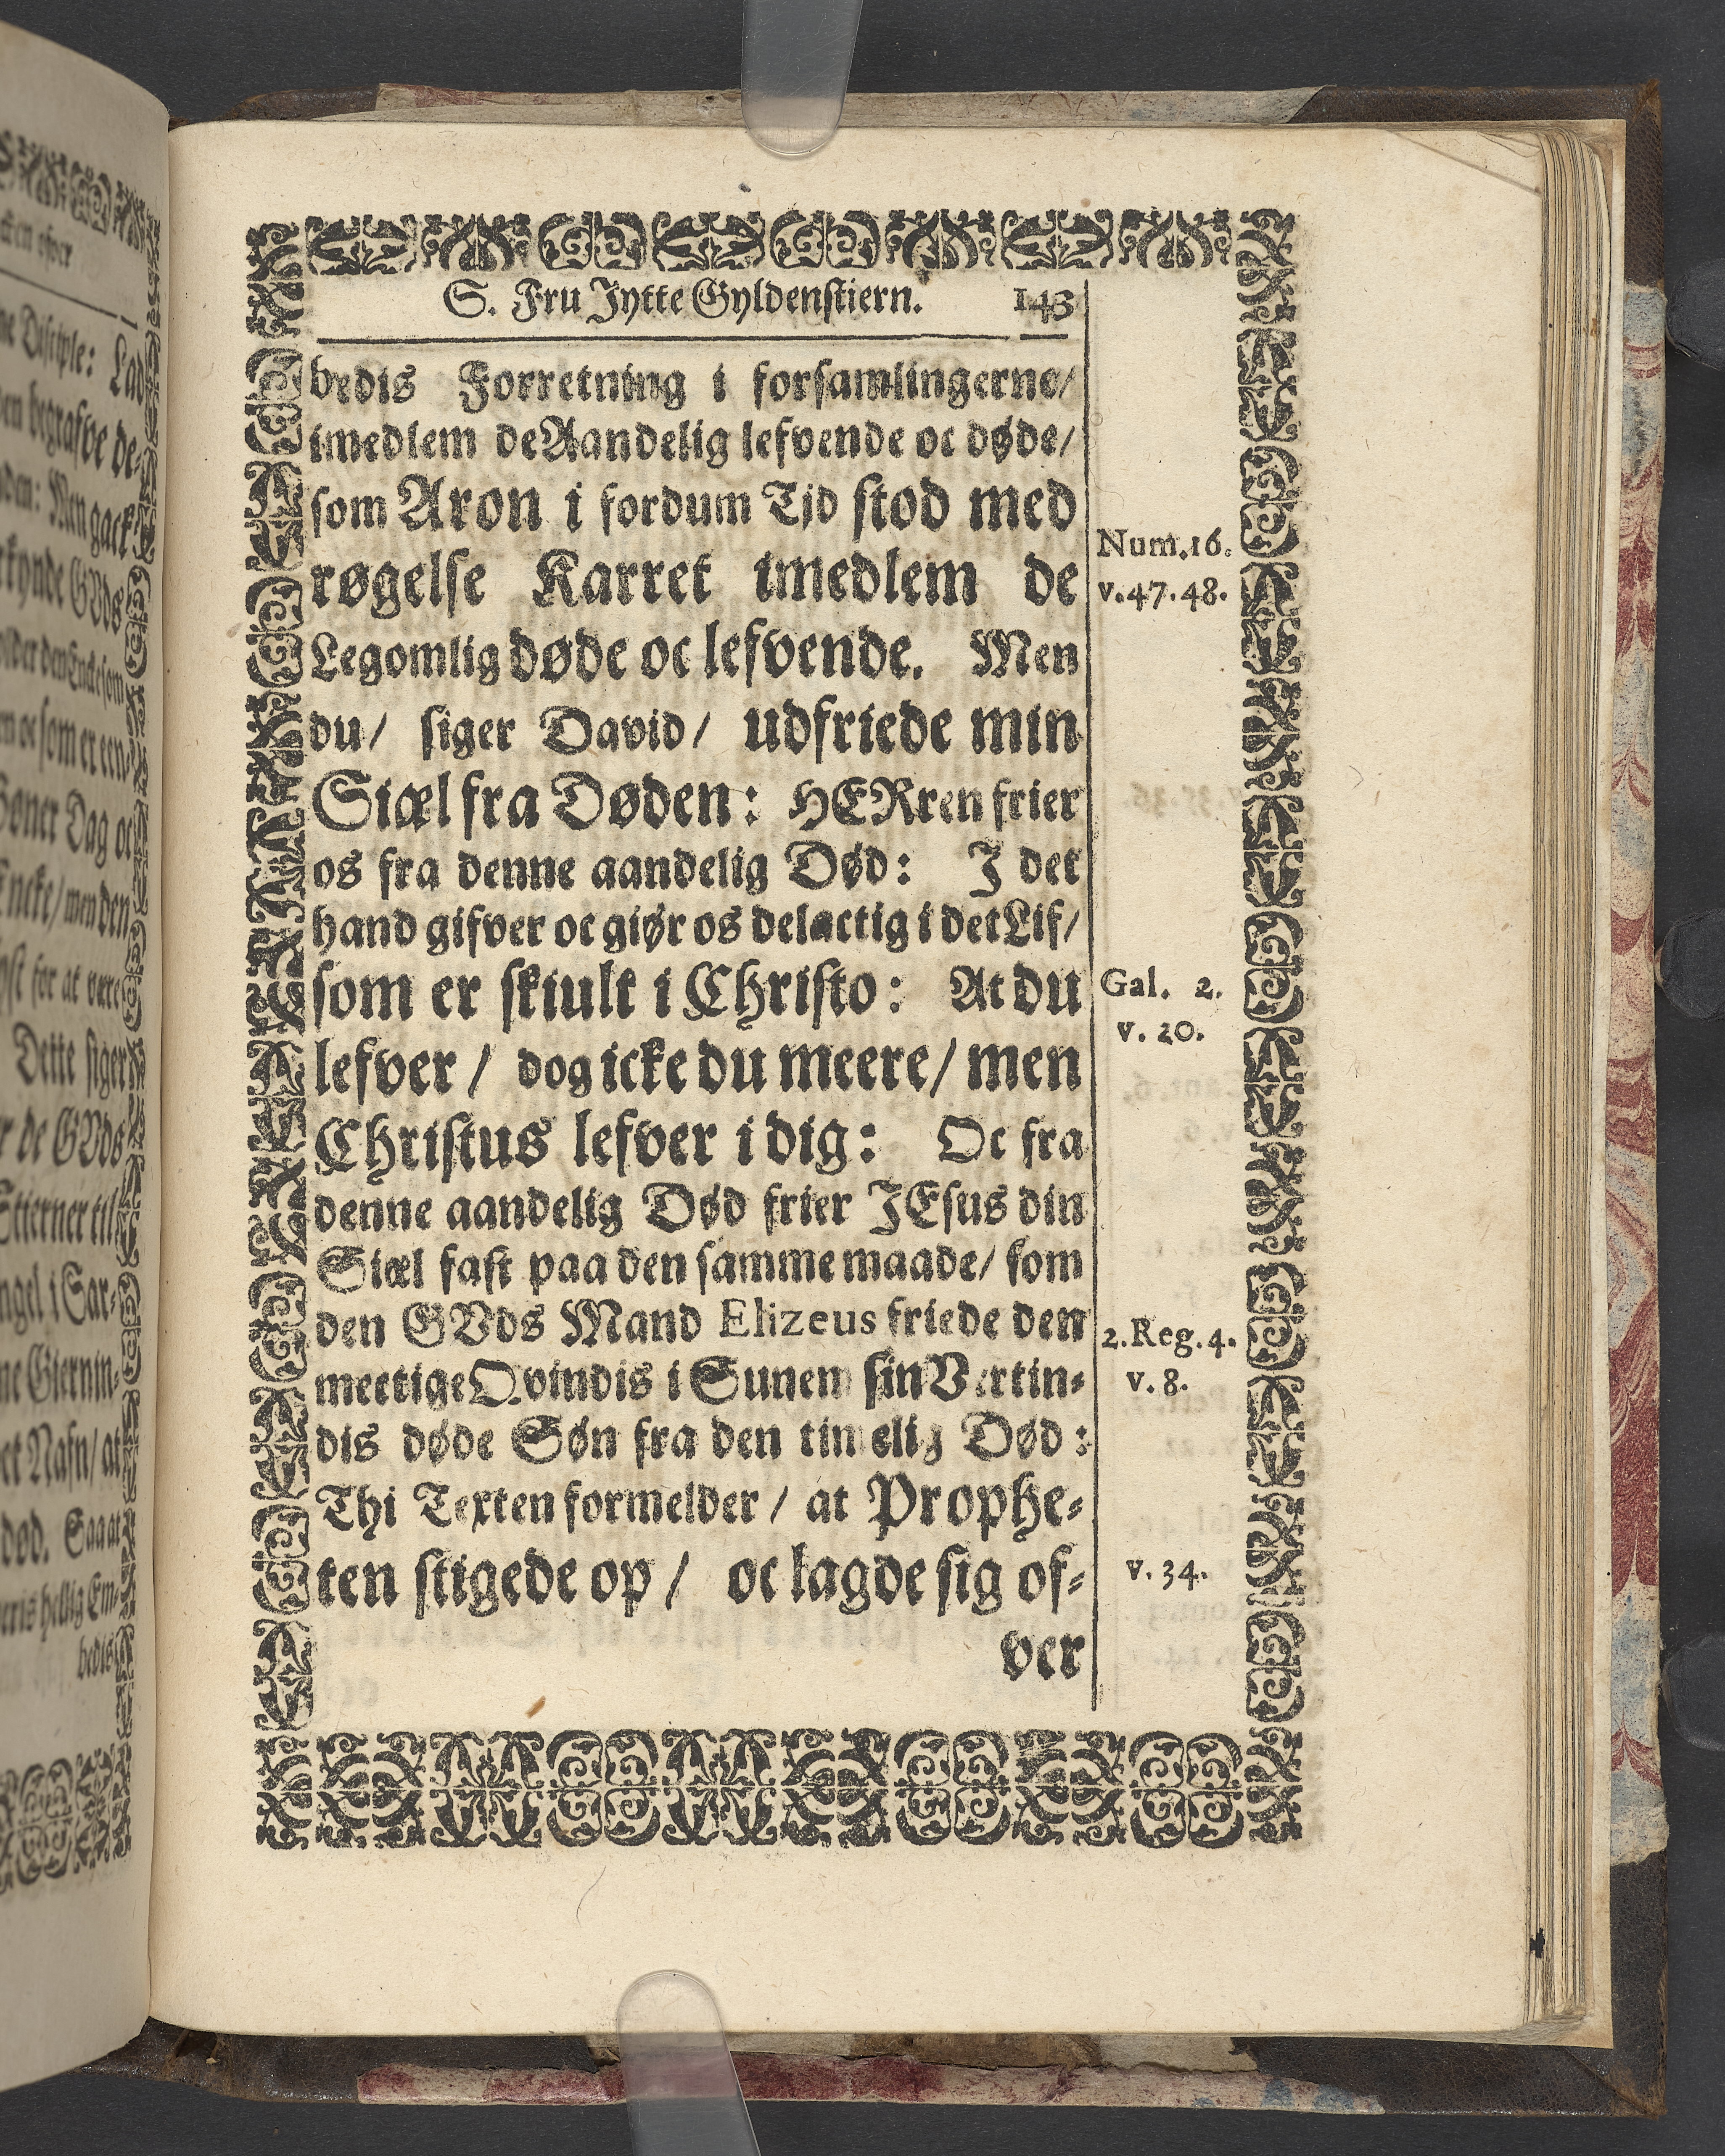 S. Fru Jytte Gyldenstiern. 143
bedis Forretning i forsamlingerne/
imedlem de Aandelig lefvende oc døde/
som Aron i fordum Tjd stod med
røgelse Karret imedlem de
Legomlig døde oc lefvende. Men
du/ siger David/ udfriede min
Siæl fra Døden: HERren frier
os fra denne aandelig Død: J det
hand gifver oc giør os delactig i det Lif/
som er skiult i Christo: At du
lefver/ dog icke du meere/ men
Christus lefver i dig: Oc fra
denne aandelig Død frier JEsus din
Siæl fast paa den samme maade/ som
den GVds Mand Elizeus friede den
mectige Qvindis i Sunem sin Vertin-
dis døde Søn fra den timelig Død:
Thi Texten formelder/ at Prophe-
ten stigede op/ oc lagde sig of-
ver
Num. 16.
v. 47. 48.
Gal. 2.
v. 20.
2. Reg. 4.
v. 8.
v. 34.